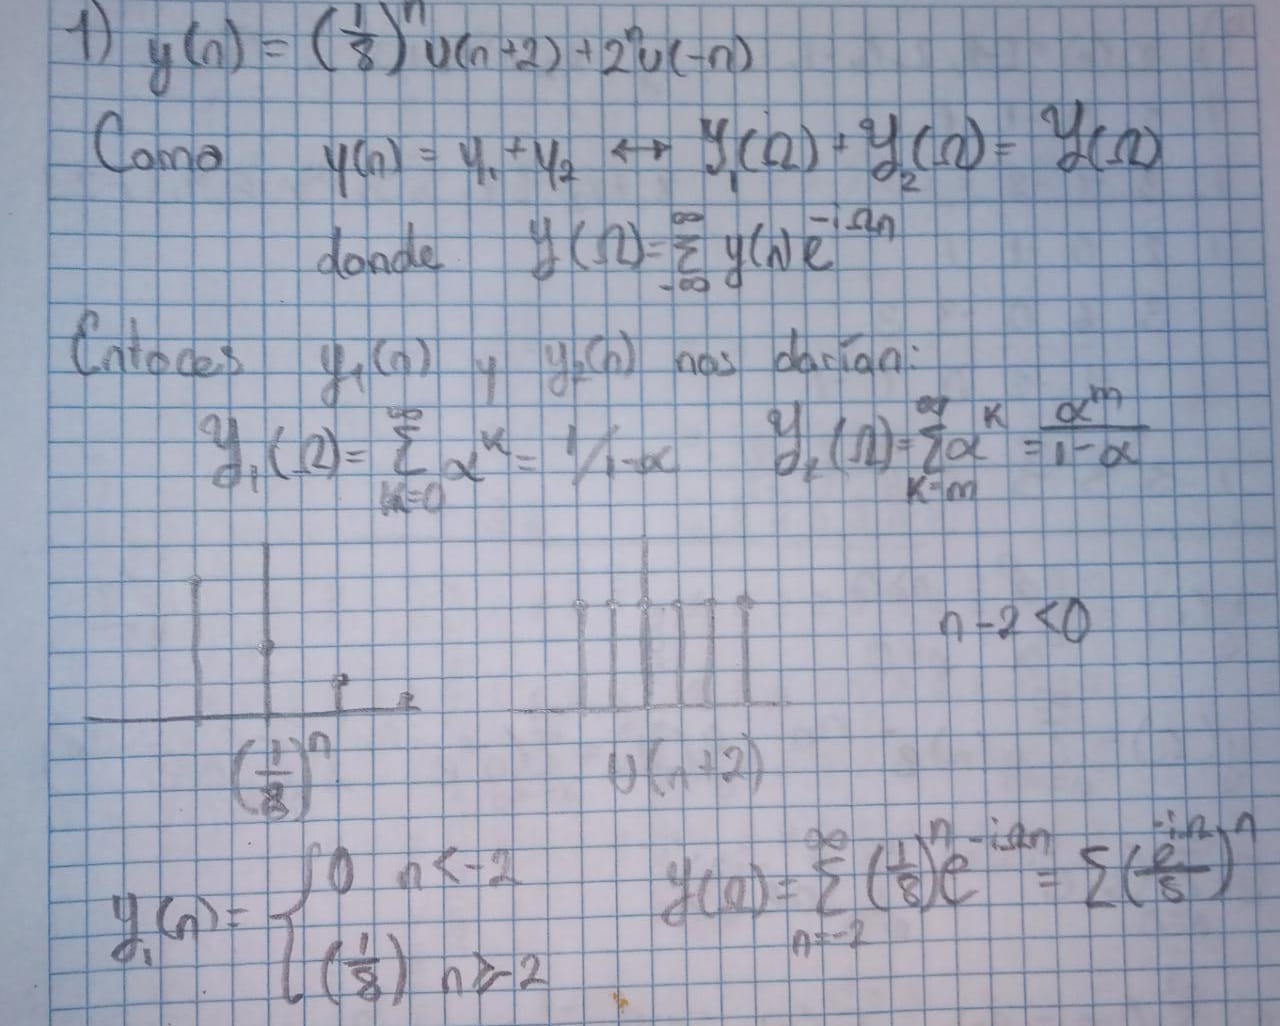 1) y(n) = (1/8)^n u(n+2) + 2^n u(-n)
Como y(n) = y₁ + y₂ ↔ Y₁(Ω) + Y₂(Ω) = Y(Ω)
donde Y(Ω) = Σ_{-∞}^{∞} y(n) e^{-iΩn}
Entoces y₁(n) y y₂(n) nos darían:
Y₁(Ω) = Σ_{k=0}^{∞} α^k = 1/1-α Y₂(Ω) = Σ_{k=m}^{∞} α^k = α^m/1-α
n-2<0
(1/8)^n u(n+2)
y₁(n) = { 0 n<-2
(1/8) n≥-2
Y(Ω) = Σ_{n=-2}^{∞} (1/8)^n e^{-iΩn} = Σ(e^{-iΩ}/8)^n